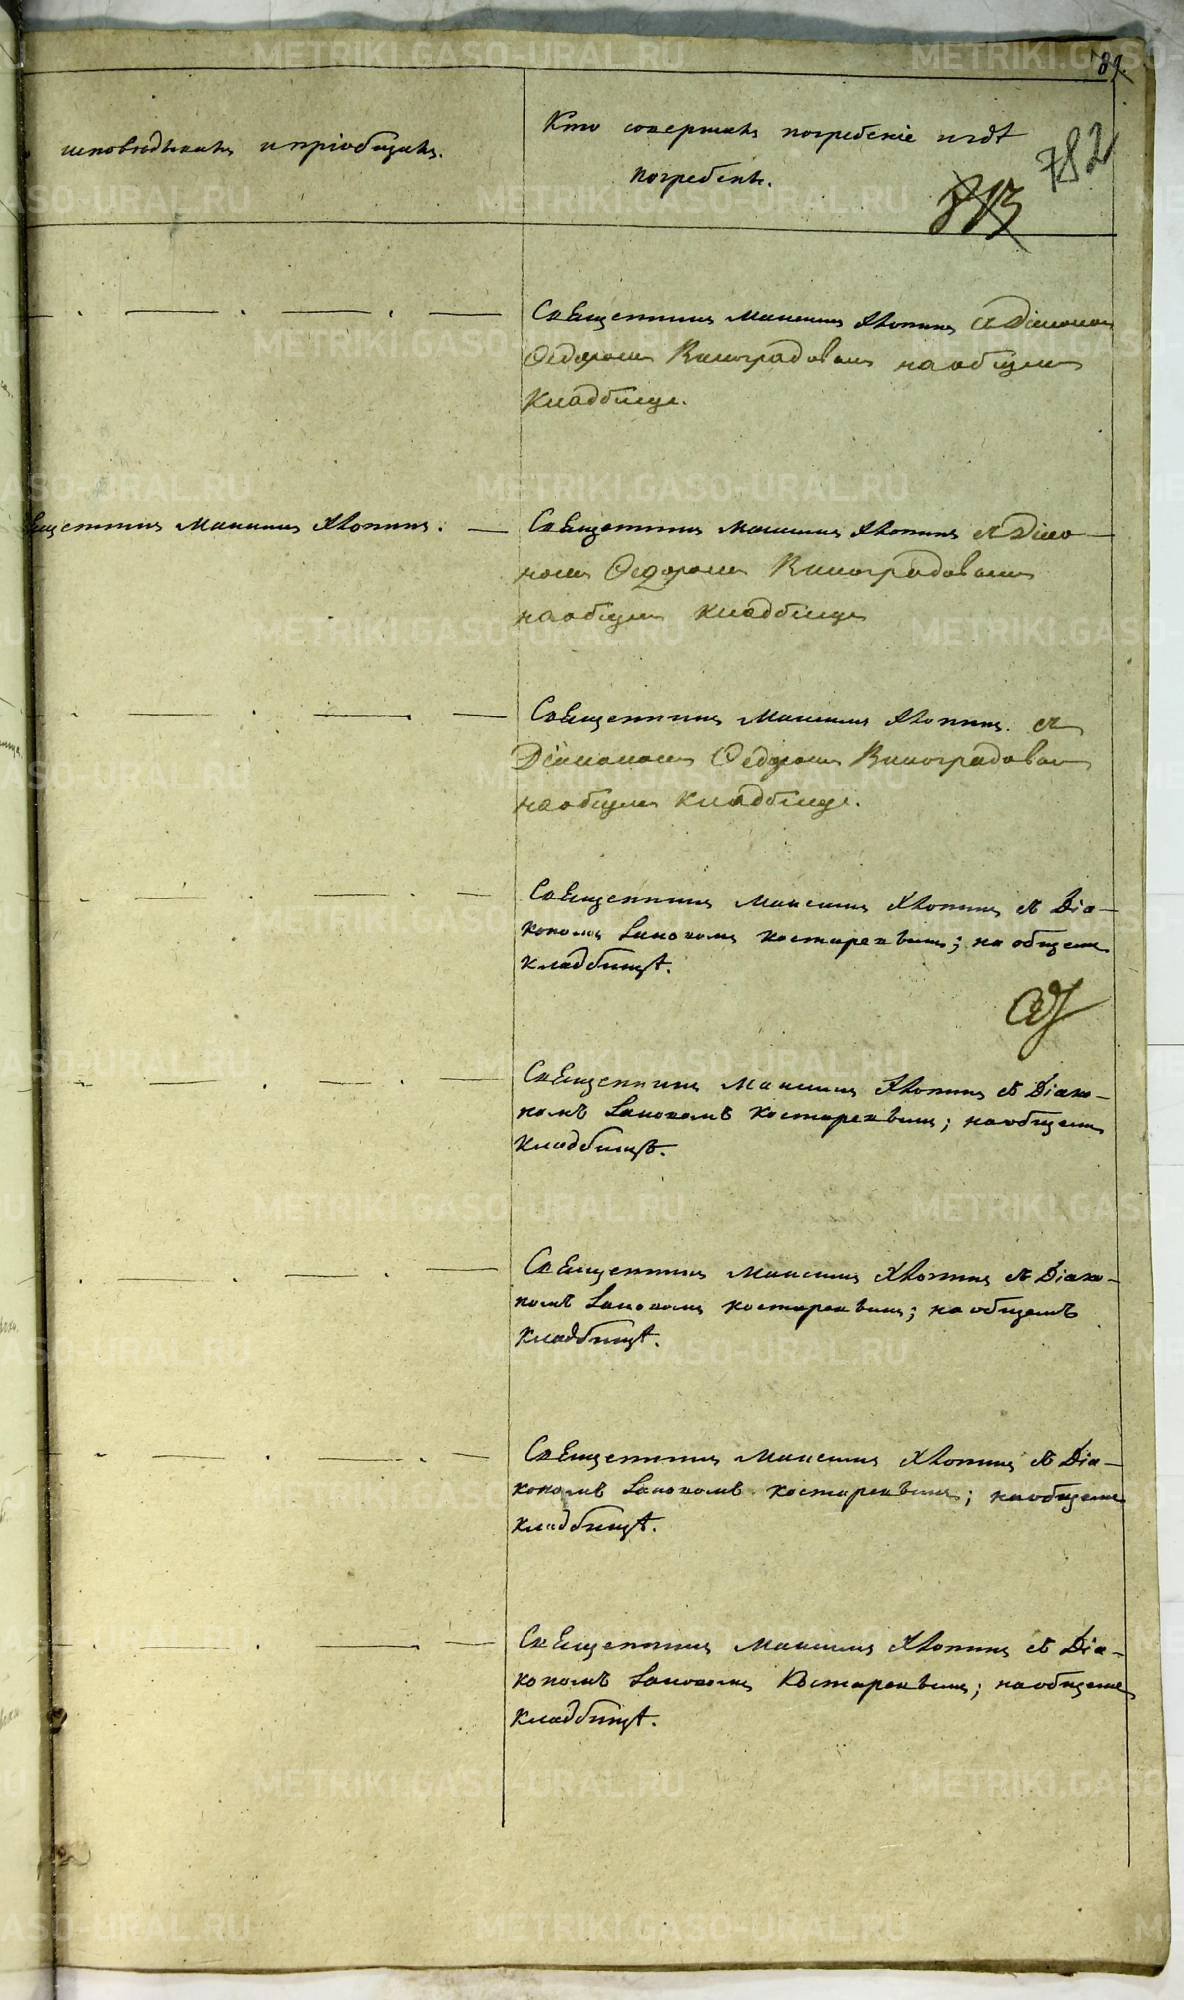 89.
исповѣдывалъ и пріобщалъ.
Кто совершалъ погребеніе и гдѣ
погребенъ.
782
813
Священникъ Максимъ Хлопинъ съ Діакономъ
Ѳедоромъ Виноградовымъ на общемъ
кладбище.
Священникъ Максимъ Хлопинъ. —
Священникъ Максимъ Хлопинъ съ Діако-
номъ Ѳедоромъ Виноградовымъ
на общемъ кладбище
Священникъ Максимъ Хлопинъ. съ
Діакономъ Ѳедоромъ Виноградовым
на общемъ кладбище.
Священникъ Максимъ Хлопинъ съ Діа-
кономъ Іаковомъ Костаревымъ; на общемъ
кладбищѣ.
Священникъ Максимъ Хлопинъ съ Діако-
номъ Іаковомъ Костаревымъ; на общемъ
кладбищѣ.
Священникъ Максимъ Хлопинъ съ Діако-
номъ Іаковомъ Костаревымъ; на общемъ
кладбищѣ.
Священникъ Максимъ Хлопинъ съ Діа-
кономъ Іаковомъ Костаревымъ; на общемъ
кладбищѣ.
Священникъ Максимъ Хлопинъ съ Діа-
кономъ Іаковомъ Костаревымъ; на общемъ
кладбищѣ.
METRIKI.GASO-URAL.RU